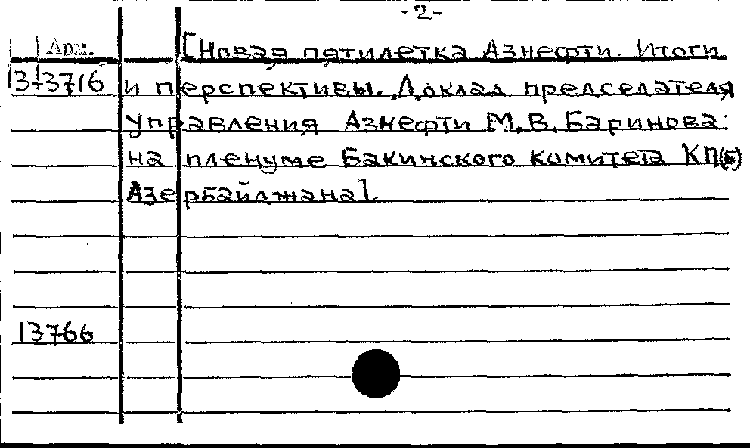 -2-
Арх. [Новая пятилетка Азнефти. Итоги
3-3716 и перспективы. Доклад председателя
управления Азнефти М.В. Баринова
на пленуме Бакинского комитета КП(б)
Азербайджана].
13766